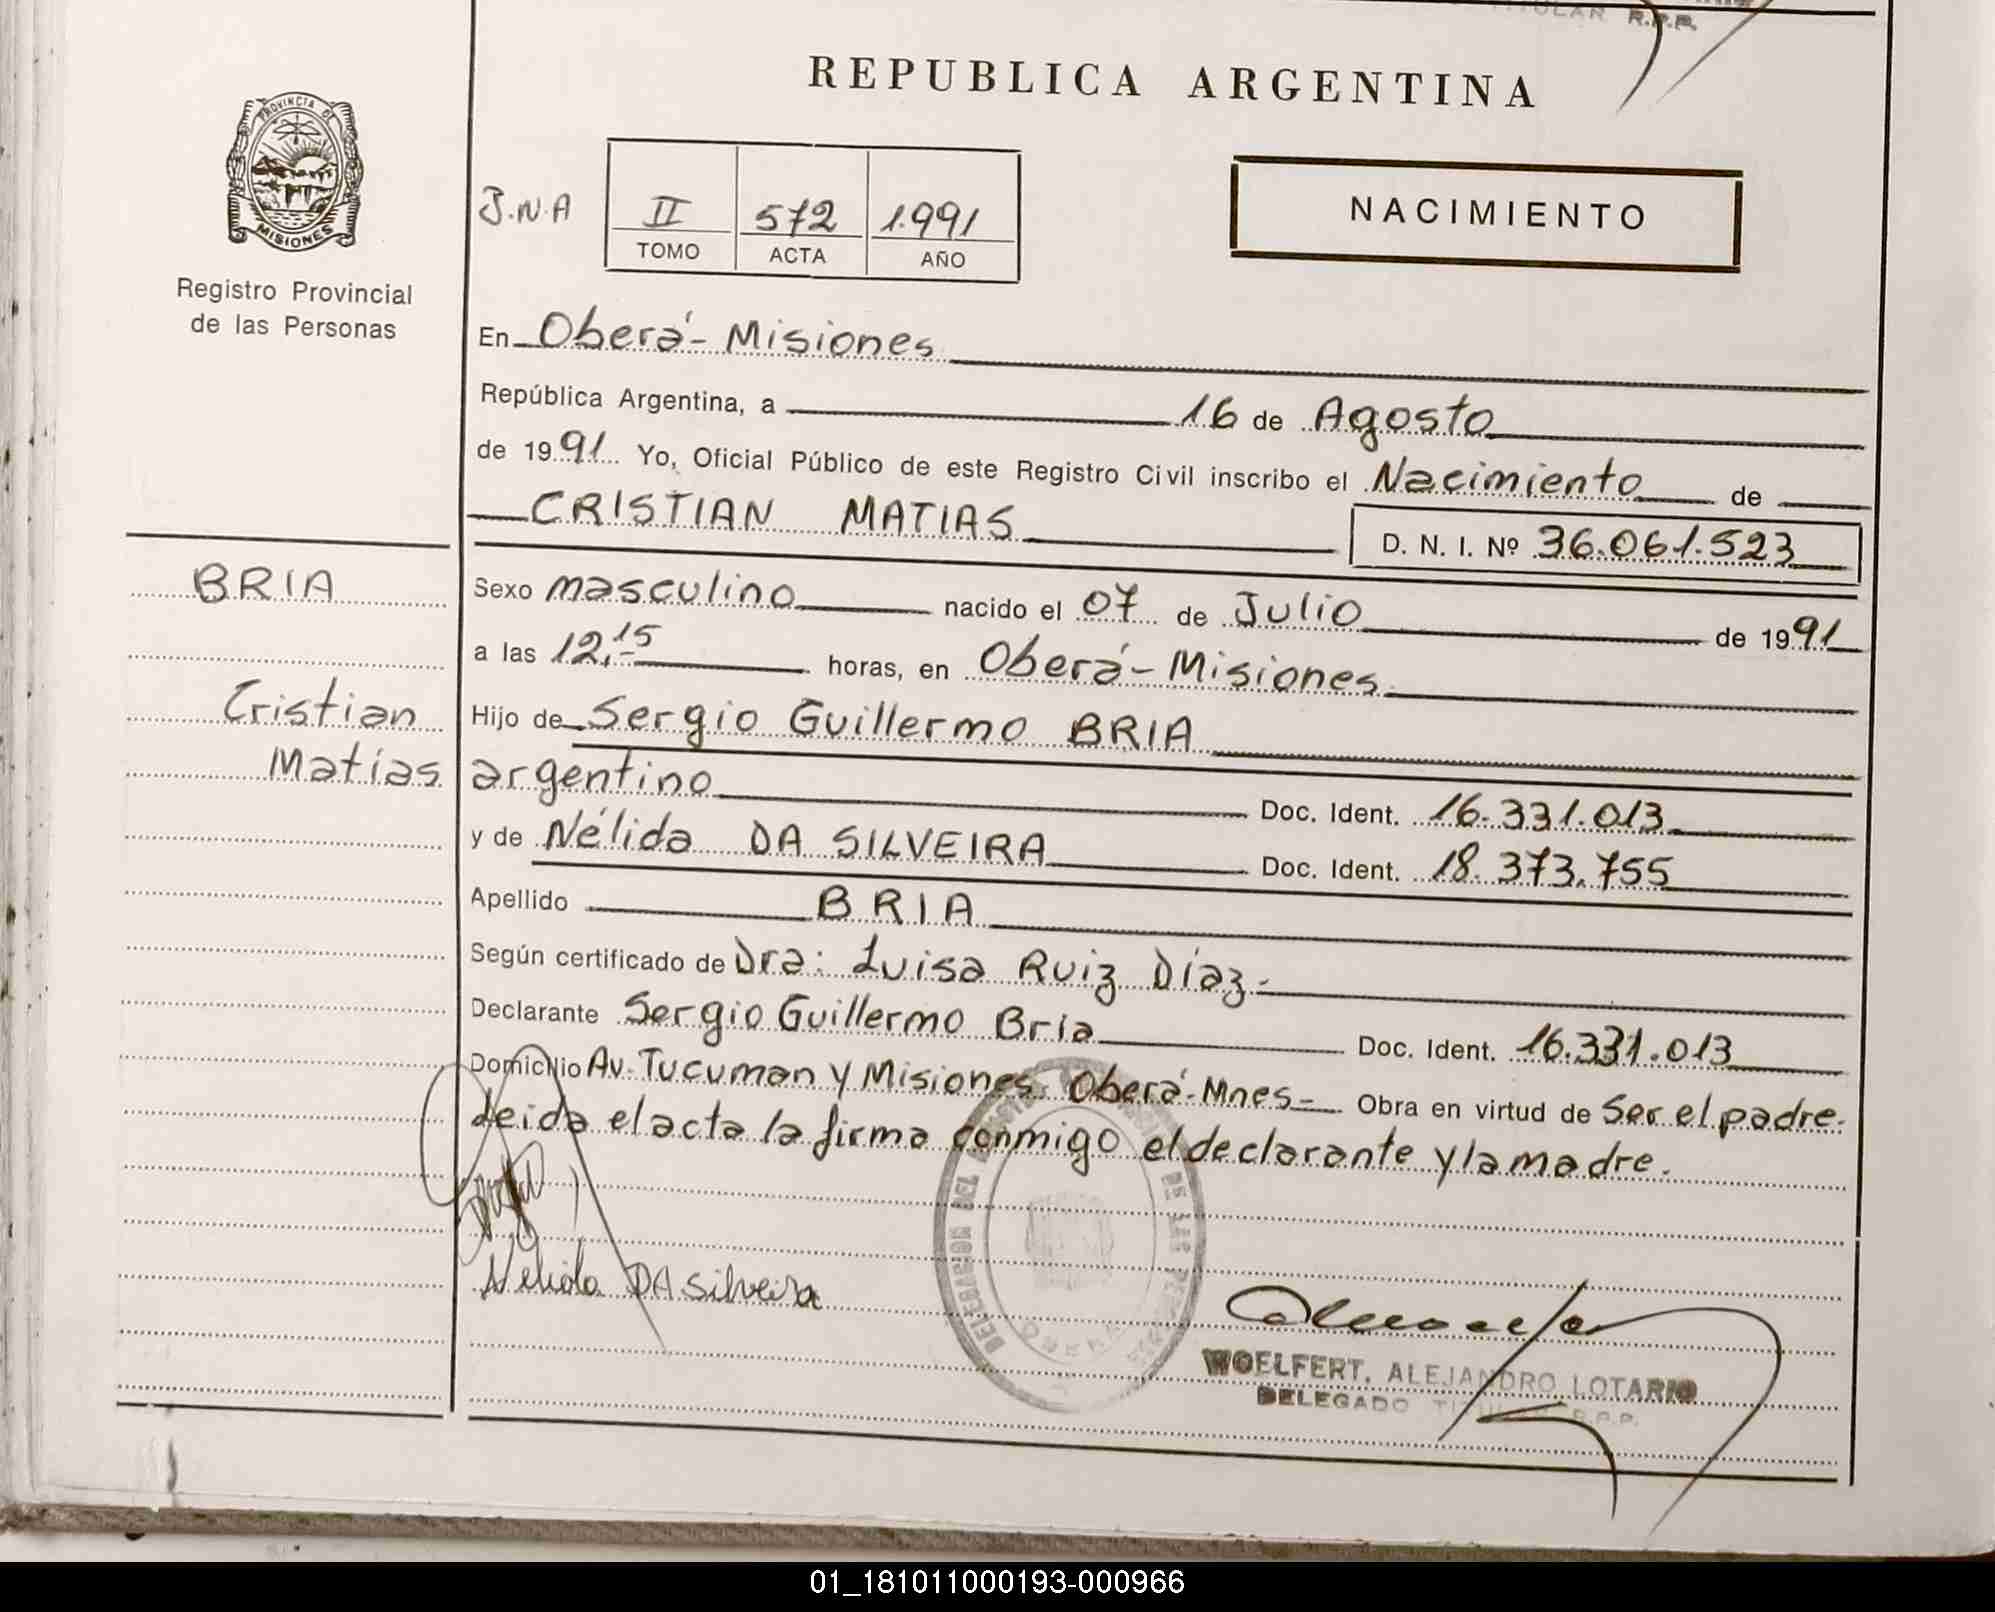 TITULAR R.P.P.
REPUBLICA ARGENTINA
PROVINCIA DE
MISIONES
Registro Provincial
de las Personas
J.N.A
II 572 1.991
TOMO ACTA AÑO
NACIMIENTO
En Oberá - Misiones
República Argentina, a 16 de Agosto
de 1991 Yo, Oficial Público de este Registro Civil inscribo el Nacimiento de
CRISTIAN MATIAS D. N. I. Nº 36.061.523
BRIA
Sexo masculino nacido el 07 de Julio de 1991
a las 12,15 horas, en Oberá - Misiones
Cristian
Matías
Hijo de Sergio Guillermo BRIA
argentino Doc. Ident. 16.331.013
y de Nélida DA SILVEIRA Doc. Ident. 18.373.755
Apellido BRIA
Según certificado de Dra: Luisa Ruiz Díaz.-
Declarante Sergio Guillermo Bria Doc. Ident. 16.331.013
Domicilio Av. Tucuman y Misiones. Oberá - Mnes- Obra en virtud de Ser el padre.
Leida el acta la firma conmigo el declarante y la madre.
DELEGACION DEL DE LAS
Nelida DA Silveira
WOELFERT, ALEJANDRO LOTARIO
DELEGADO TITULAR R.P.P.
01_181011000193-000966